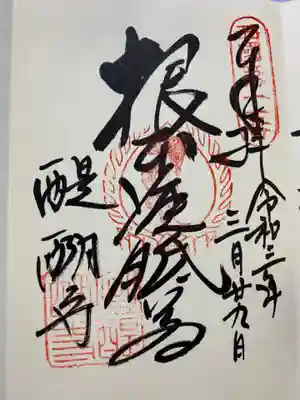 奉拝 令和三年
三月廿九日
根本准胝尊
醍醐寺